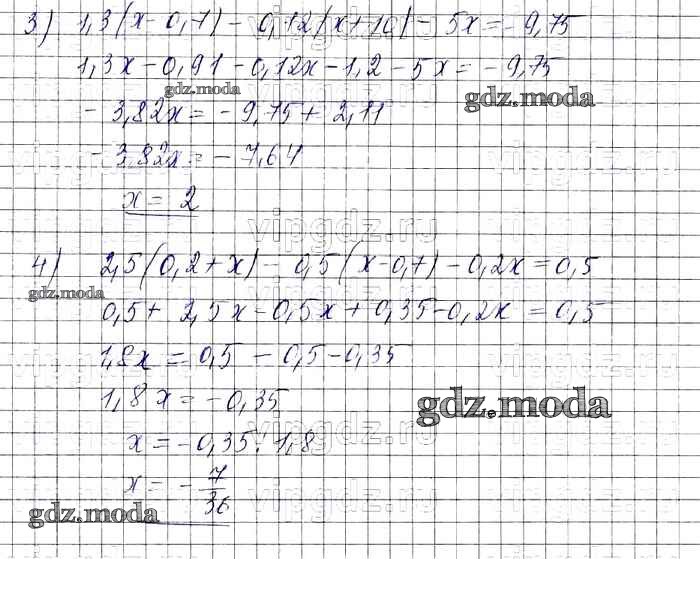 3) 1,3(x-0,7) - 0,12(x+10) - 5x = -9,75
1,3x - 0,91 - 0,12x - 1,2 - 5x = -9,75
gdz.moda gdz.moda
- 3,82x = - 9,75 + 2,11
vipgdz.ru
- 3,82x = - 7,64
x = 2
vipgdz.ru
4) 2,5(0,2+x) - 0,5(x-0,7) - 0,2x = 0,5
gdz.moda
0,5 + 2,5x - 0,5x + 0,35 - 0,2x = 0,5
1,8x = 0,5 - 0,5 - 0,35
vipgdz.ru
1,8x = -0,35
gdz.moda
x = -0,35 : 1,8
vipgdz.ru
x = - 7/36
gdz.moda